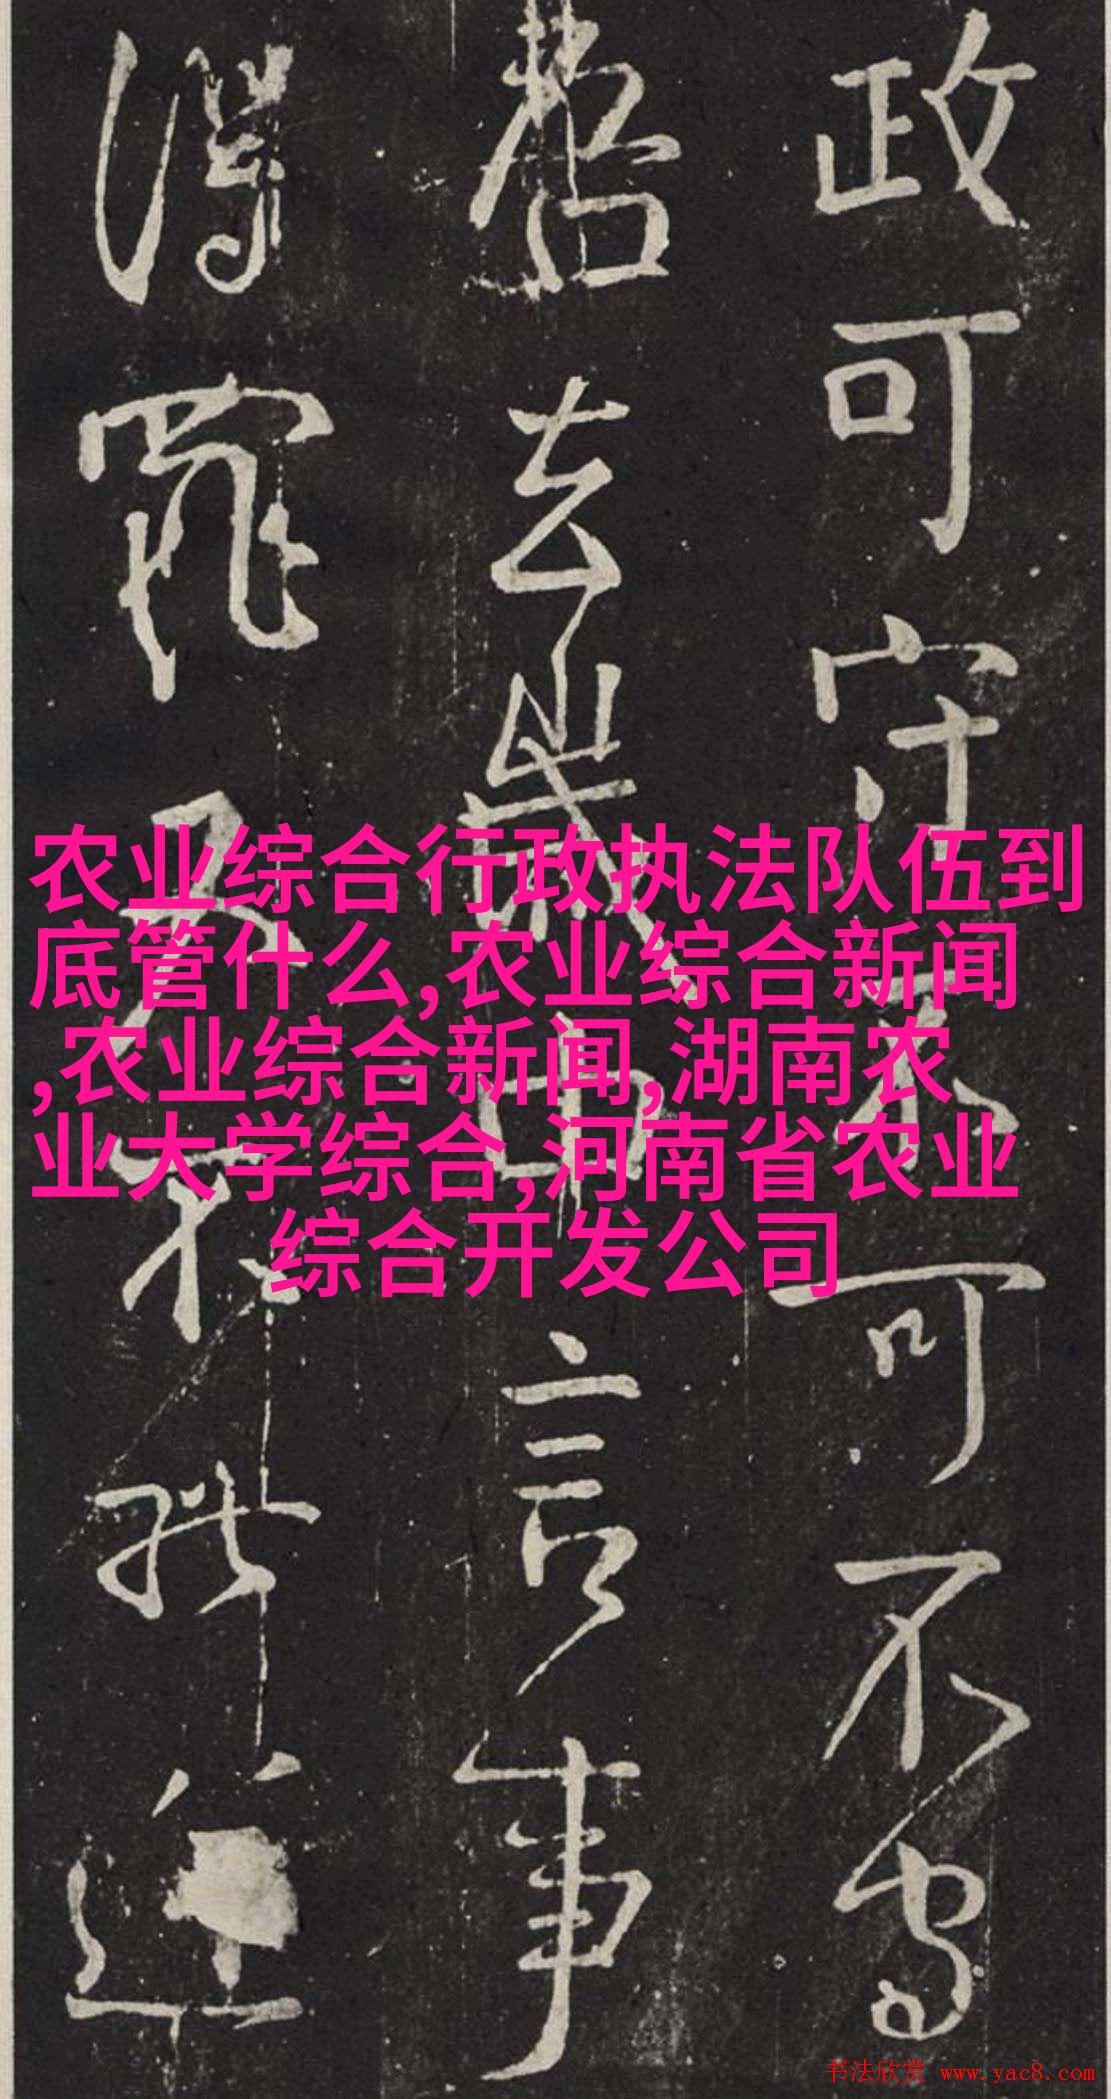 政可守不可不守
吾去歲中言事
得罪又不能逆
农业综合行政执法队伍到
底管什么,农业综合新闻
,农业综合新闻,湖南农
业大学综合,河南省农业
综合开发公司
书法欣赏 www.yac8.com